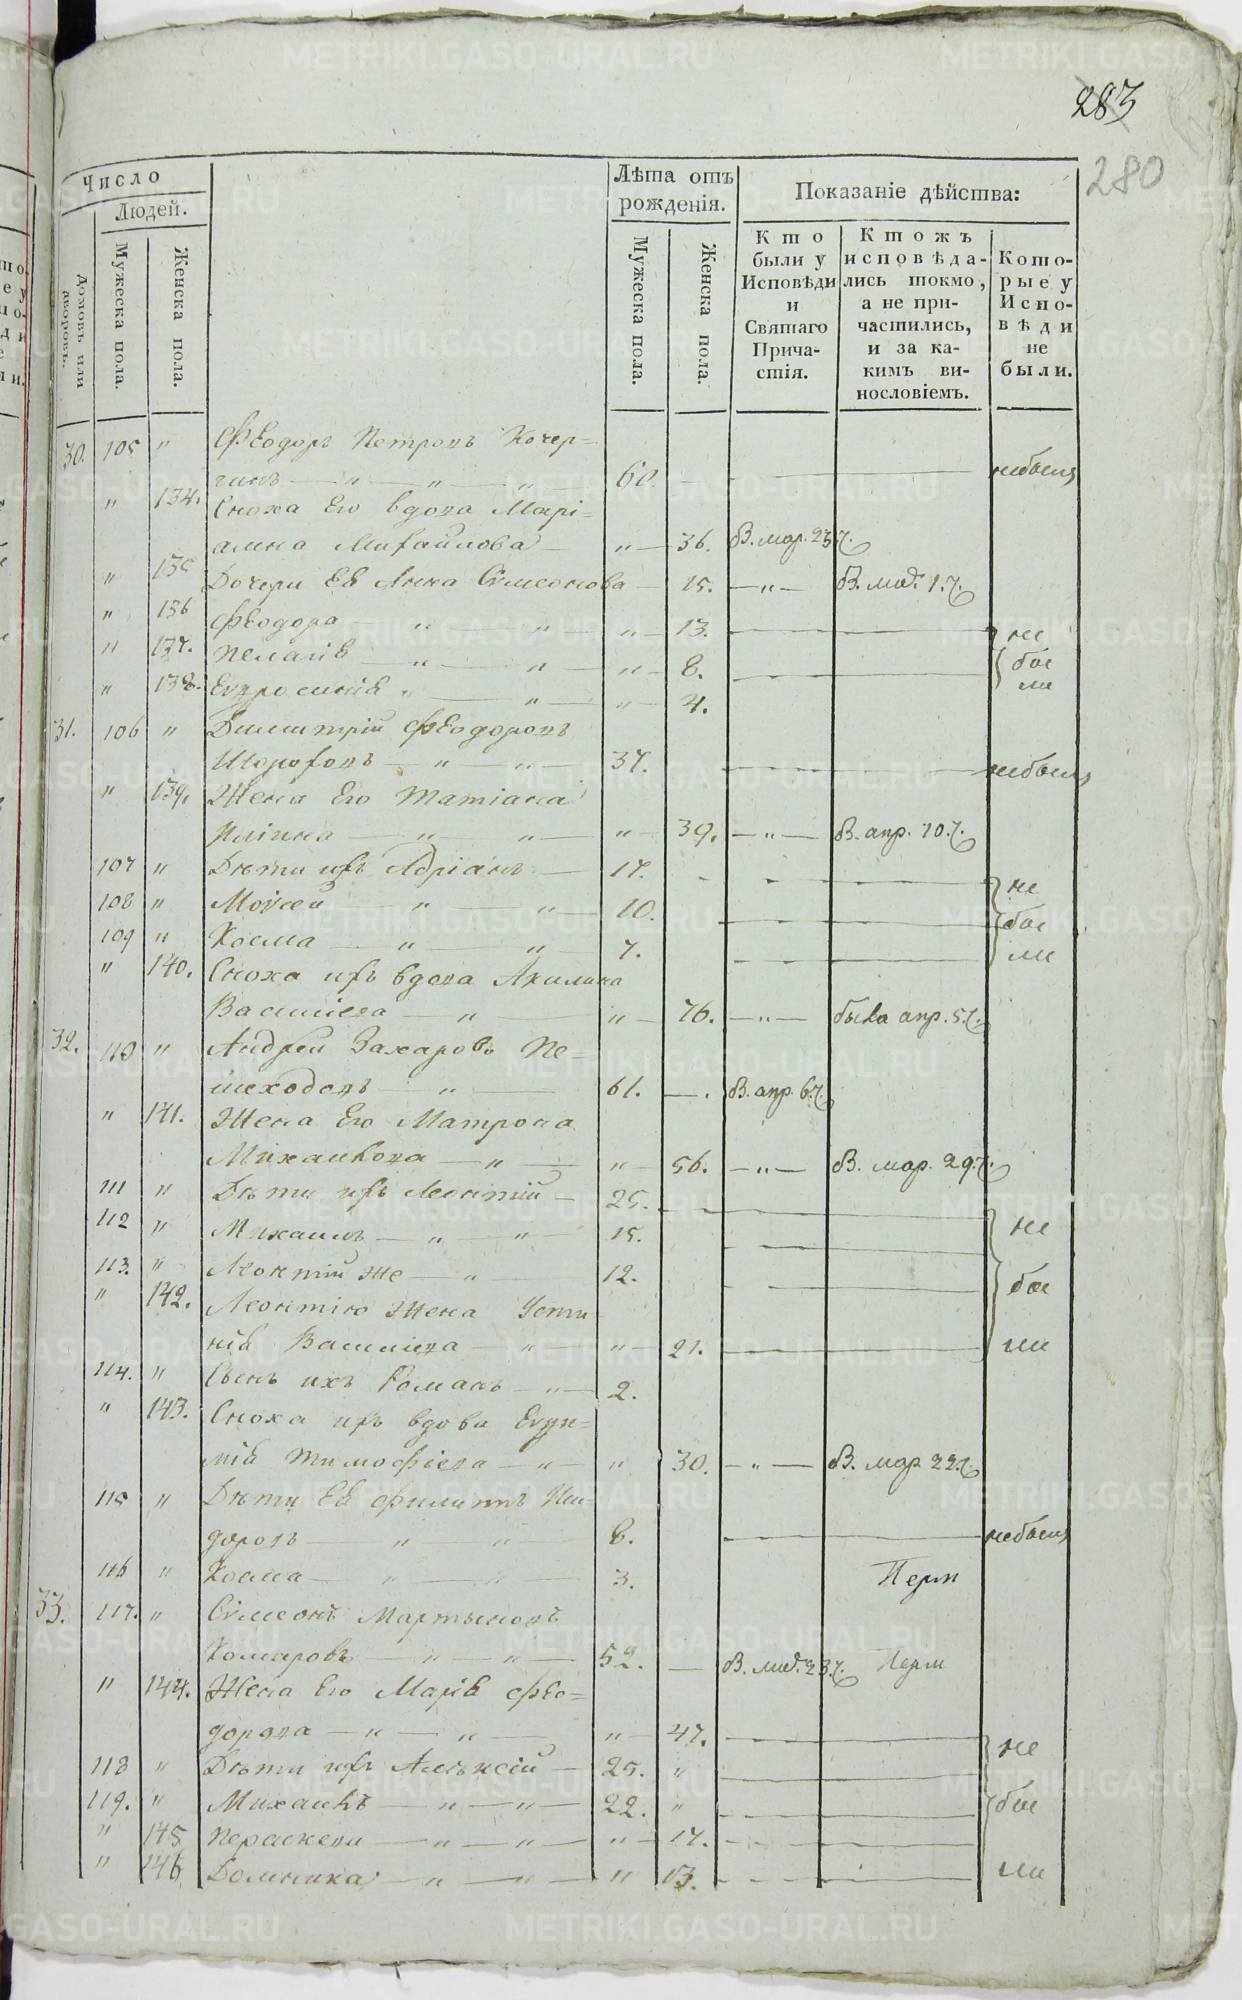 283
280
Число
Людей.
Домовъ или дворовъ.
Мужеска пола.
Женска пола.
Лѣта отъ рожденія.
Мужеска пола.
Женска пола.
Показаніе дѣйства:
Кто были у Исповѣди и Святаго Причастія.
Ктожъ исповѣдались токмо, а не причастились, и за какимъ винословіемъ.
Которые у Исповѣди не были.
30. 105 " Феодоръ Петровъ Кочер=
гинъ — " — " 60. — небылъ
" 134. Сноха Его вдова Марі=
амна Михаилова — " — 36. В. мар. 23.
" 135 Дочери Ея Анна Сѵмеонова — 15. — " — В. 1.
" 136 Феодора " " — " — 13. — не
" 137. Пелагія — " — " — " — 8. — бы
" 138. Евфросинія " — " — " — 4. ли
31. 106 " Димитрій Феодоровъ
Шороховъ — " — " — 37. — небылъ
" 139. Жена Его Татіана
Иліина — " — " — " — 39. — " — В. апр. 10.
107 " Дѣти ихъ Адріанъ — 17. — не
108 " Моѵсей — " — " 10. — бы
109 " Косма — " — " 7. — ли
" 140. Сноха ихъ вдова Акилина
Василіева — " — " — 76. — " — была апр. 5.
32. 110 " Андрей Захаровъ Пе=
шеходовъ — " — 61. — В. апр. 6.
" 141. Жена Его Матрона
Михаилова — " — " — 56. — " — В. мар. 29.
111 " Дѣти ихъ Леонтій — 25. — не
112 " Михаилъ — " — " — 15.
113. " Леонтій же — " — 12. — бы
" 142. Леонтію Жена Усти
нія Василіева — " — " — 21. — ли
114. " Сынъ ихъ Романъ — " — 2.
" 143. Сноха ихъ вдова Евѳи=
мія Тимофіева — " — " 30. — " — В. мар. 22.
115 " Дѣти Ея Филиппъ Иси=
доровъ " " — 8. — небылъ
116 " Косма — " — " — 3. Перм
33. 117. " Сѵмеонъ Мартыновъ
Комаровъ — " — " — 52. — В. 23. Перм
" 144. Жена Его Марія Фео=
дорова — " — " — " — 47. — не
118 " Дѣти ихъ Алексій — 25. "
119. " Михаилъ — " — " — 22. " — бы
" 145 Параскева — " — " — " — 17.
" 146 Домника — " — " — " 13. — ли
METRIKI.GASO-URAL.RU